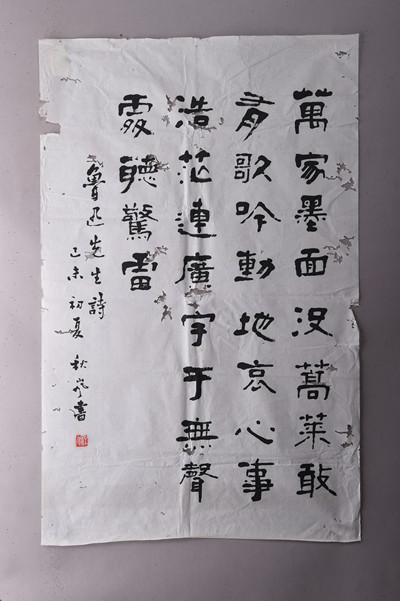 萬家墨面沒蒿萊敢
有歌吟動地哀心事
浩茫連廣宇于無聲
處聽驚雷
魯迅先生詩
己未初夏 秋書